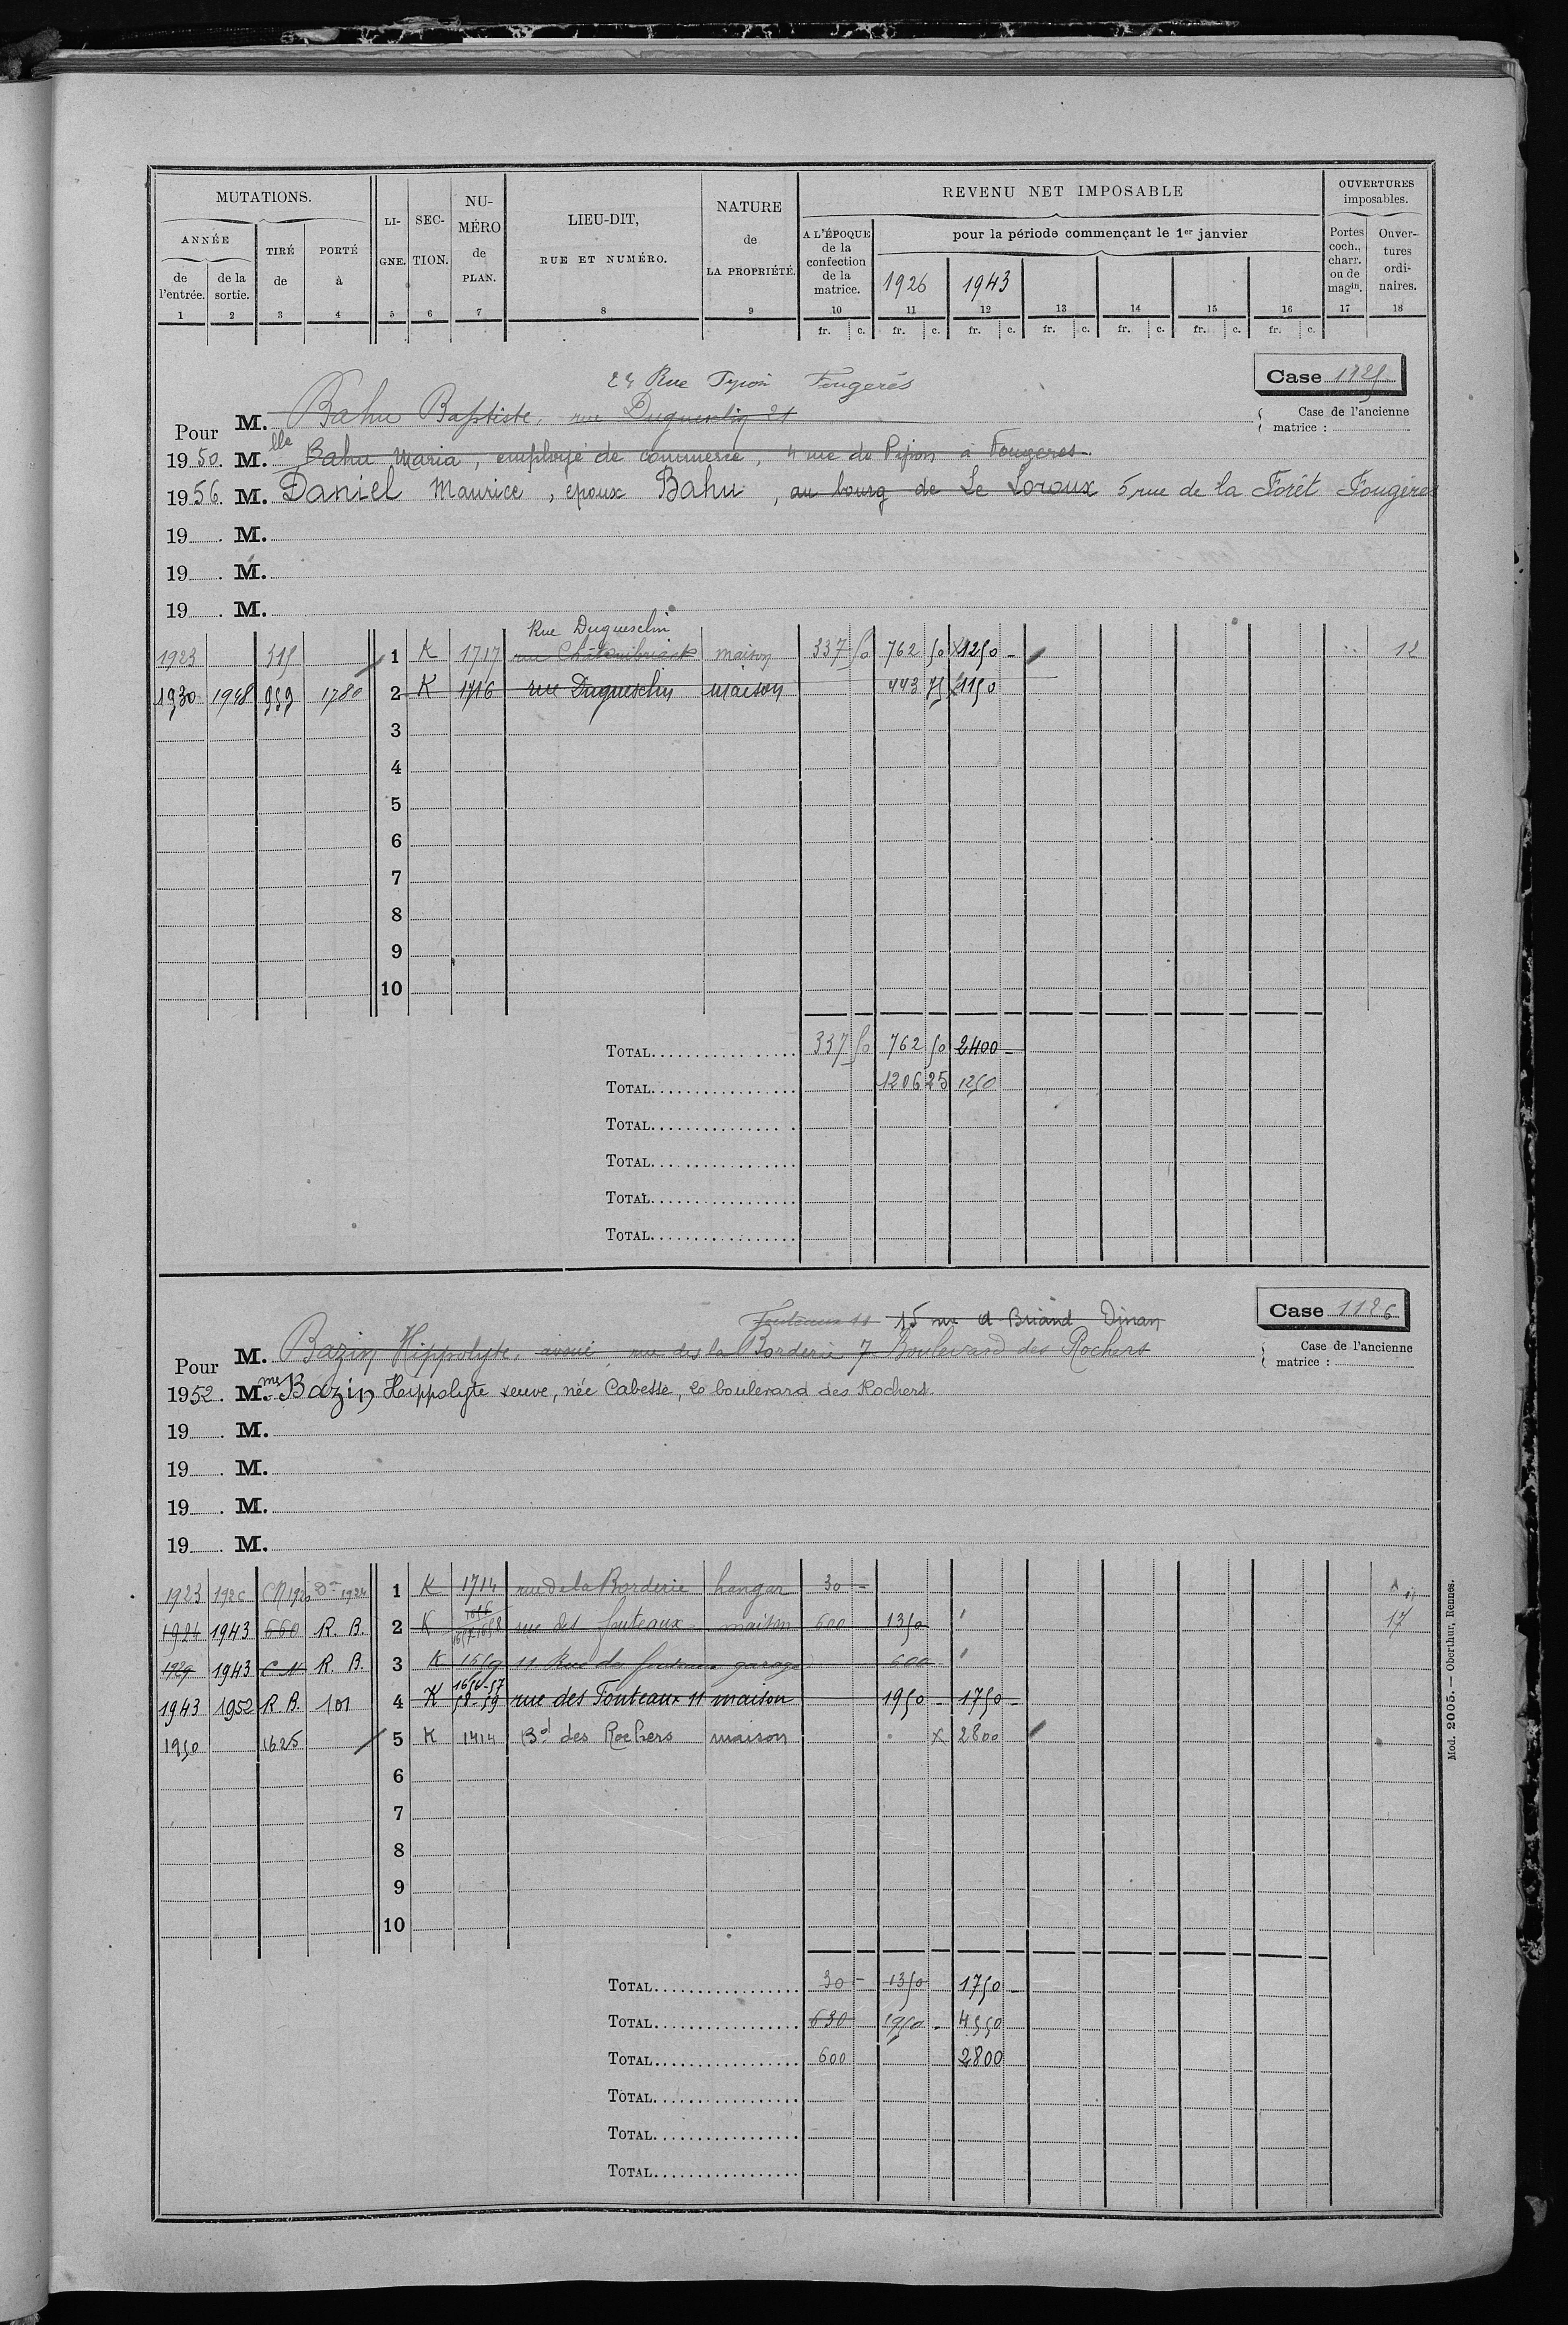 MUTATIONS.
ANNÉE
de l'entrée.
de la sortie.
TIRÉ de
PORTÉ à
LI-GNE.
SEC-TION.
NU-MÉRO de PLAN.
LIEU-DIT, RUE ET NUMÉRO.
NATURE de LA PROPRIÉTÉ.
REVENU NET IMPOSABLE
A L'ÉPOQUE de la confection de la matrice.
pour la période commençant le 1er janvier
1926 1943
OUVERTURES imposables.
Portes coch., charr. ou de magin.
Ouver-tures ordi-naires.
1 2 3 4 5 6 7 8 9 10 11 12 13 14 15 16 17 18
fr. c. fr. c. fr. c. fr. c. fr. c. fr. c. fr. c.
Case 1125
Rue Fougerés
Case de l'ancienne matrice :
Pour M. Bahu Baptiste, rue Duguesclin 21
1950. M.lle Bahu Maria, employé de commerce, 4 rue de Pipon à Fougeres
1956. M. Daniel Maurice, epoux Bahu, au bourg de Le Loroux 5 rue de la Forêt Fougères
19 . M.
19 . M.
19 . M.
Rue Duguesclin
1923 315 1 K 1717 rue Châteaubriant maison 337 50 762 50 x1250 - 12
1930 1948 959 1780 2 K 1716 rue Duguesclin maison 443 75 x1150
3
4
5
6
7
8
9
10
TOTAL 337 50 762 50 2400 -
TOTAL 1206 25 1250
TOTAL
TOTAL
TOTAL
TOTAL
Case 1126
Fouteaux 11 15 rue A Briand Dinan
Case de l'ancienne matrice :
Pour M. Bazin Hippolyte, avoué, rue de la Borderie 7 Boulevard des Rochers
1952. Mme Bazin Hippolyte veuve, née Cabesse, 20 boulevard des Rochers.
19 . M.
19 . M.
19 . M.
19 . M.
1923 1926 CN 1920 Don 1924 1 K 1714 rue de la Borderie hangar 30 -
1924 1943 660 R. B. 2 K 1656 1657-1658 rue des fouteaux maison 600 1350 17
1929 1943 C N R. B. 3 K 1659 11 Rue des fouteaux garage 600 -
1943 1952 R. B. 101 4 K 1656-57 58-59 rue des Fouteaux 11 maison 1950 - 1750 -
1950 1625 5 K 1414 Bd des Rochers maison x 2800
6
7
8
9
10
TOTAL 30 - 1350 1750 -
TOTAL 630 1950 - 4550
TOTAL 600 2800
TOTAL
TOTAL
TOTAL
Mod. 2005. — Oberthur, Rennes.